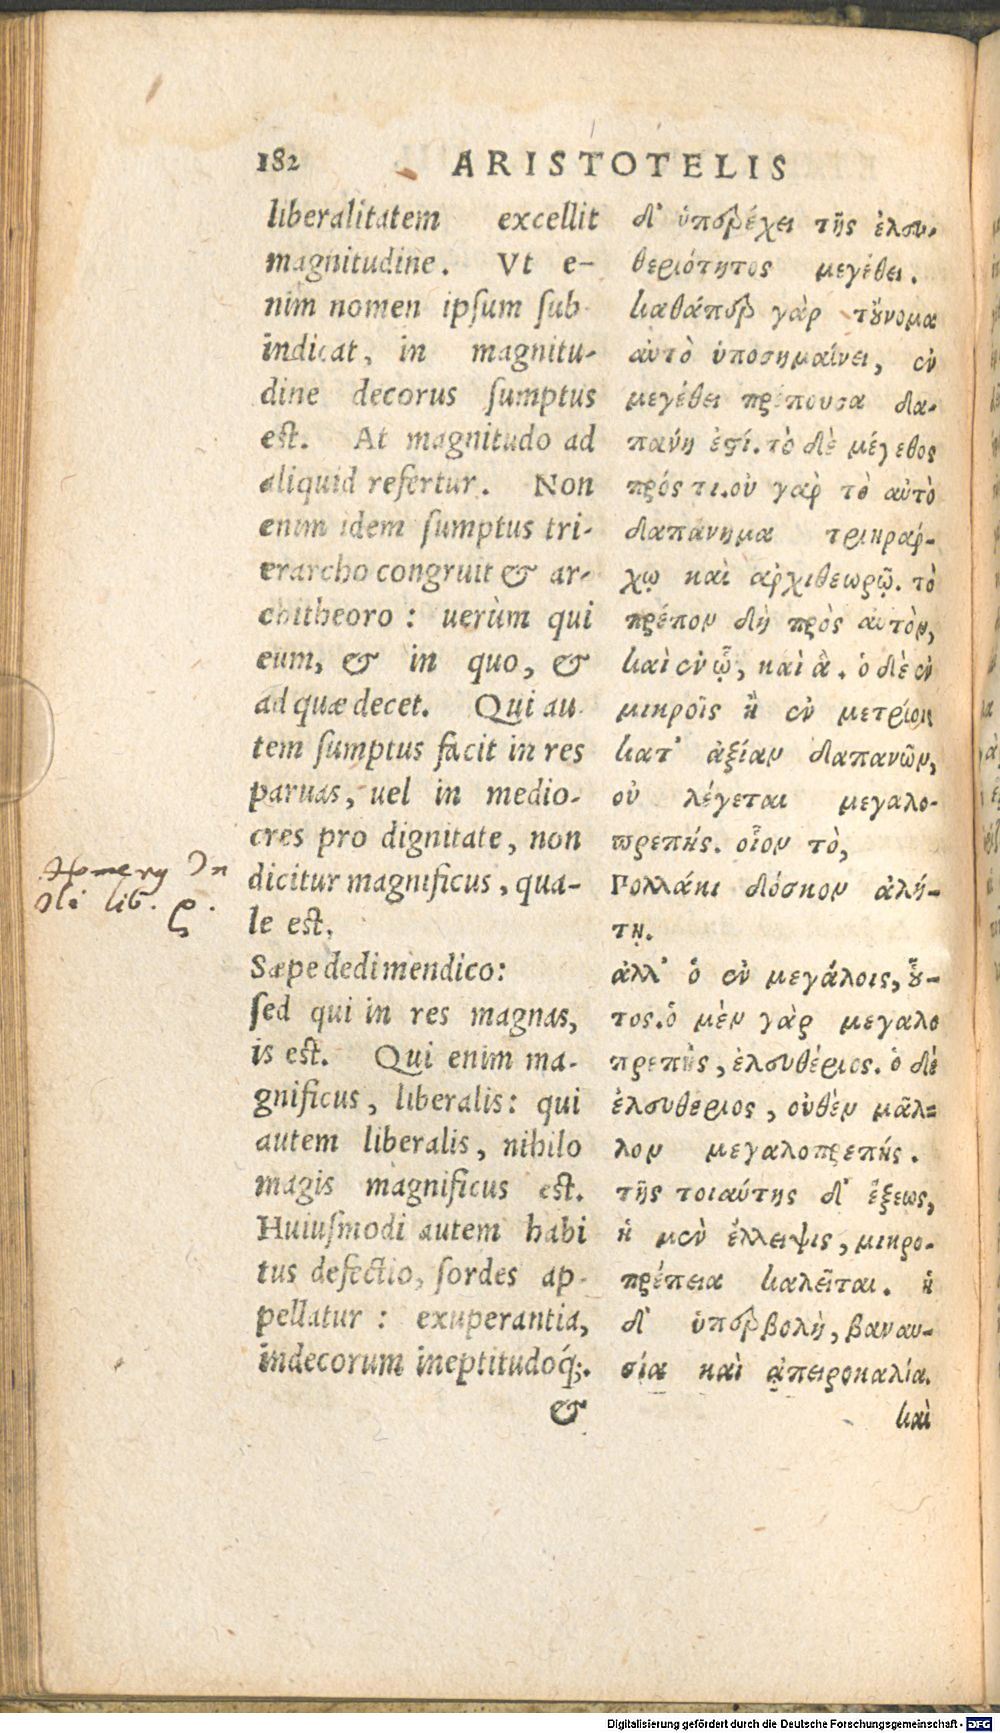 182 ARISTOTELIS
liberalitatem excellit
magnitudine. Vt e-
nim nomen ipſum ſub
indicat, in magnitu-
dine decorus ſumptus
est. At magnitudo ad
aliquid refertur. Non
enim idem ſumptus tri-
erarcho congruit & ar-
chitheoro: uerùm qui
eum, & in quo, &
ad quæ decet. Qui au
tem ſumptus facit in res
paruas, uel in medio-
cres pro dignitate, non
dicitur magnificus, qua-
le est,
Sæpe dedi mendico:
ſed qui in res magnas,
is est. Qui enim ma-
gnificus, liberalis: qui
autem liberalis, nihilo
magis magnificus est.
Huiuſmodi autem habi
tus defectio, ſordes ap-
pellatur: exuperantia,
indecorum ineptitudoq́;.
&
δ' ὑπερέχει τῆς ἐλευ-
θεριότητος μεγέθει.
καθάπερ γὰρ τοὔνομα
αὐτὸ ὑποσημαίνει, ἐν
μεγέθει πρέπουσα δα-
πάνη ἐστί. τὸ δὲ μέγεθος
πρός τι. οὐ γὰρ τὸ αὐτὸ
δαπάνημα τριηράρ-
χῳ καὶ ἀρχιθεωρῷ. τὸ
πρέπον δὴ πρὸς αὐτὸν,
καὶ ἐν ᾧ, καὶ ἃ. ὁ δὲ ἐν
μικροῖς ἢ ἐν μετρίοις
κατ' ἀξίαν δαπανῶν,
οὐ λέγεται μεγαλο-
πρεπής. οἷον τὸ,
Πολλάκι δόσκον ἀλή-
τῃ.
ἀλλ' ὁ ἐν μεγάλοις, οὗ-
τος. ὁ μὲν γὰρ μεγαλο
πρεπὴς, ἐλευθέριος. ὁ δὲ
ἐλευθέριος, οὐθὲν μᾶλ-
λον μεγαλοπρεπής.
τῆς τοιαύτης δ' ἕξεως,
ἡ μὲν ἔλλειψις, μικρο-
πρέπεια καλεῖται. ἡ
δ' ὑπερβολὴ, βαναυ-
σία καὶ ἀπειροκαλία.
καὶ
lib. ς.
Digitalisierung gefördert durch die Deutsche Forschungsgemeinschaft - DFG